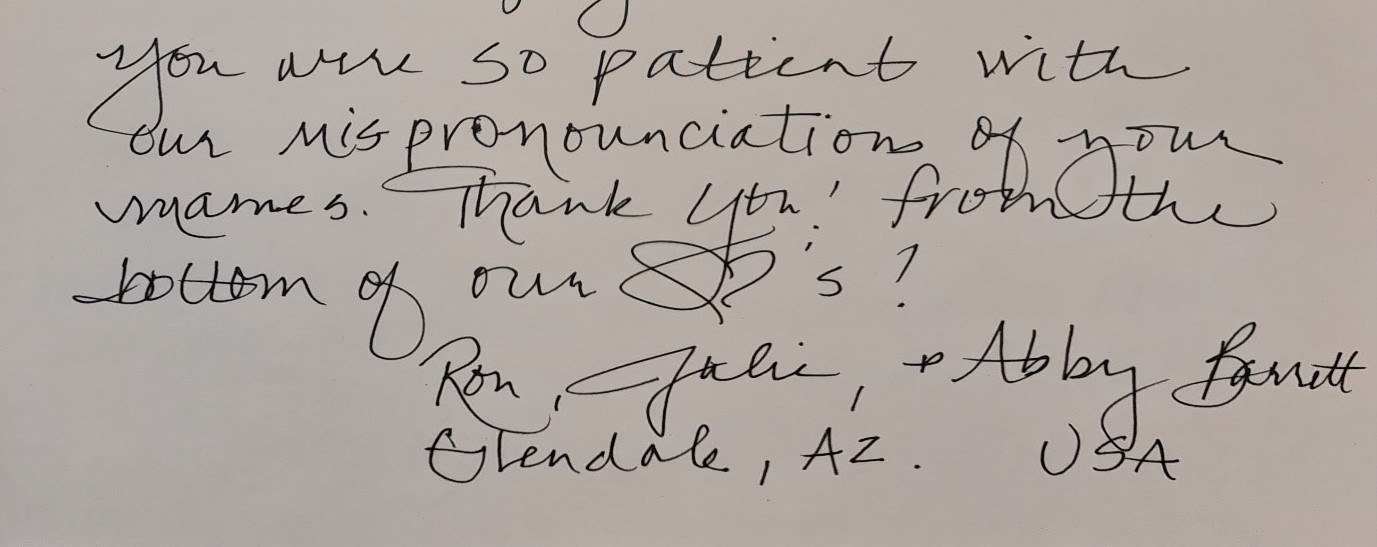 you were so patient with
our mispronounciations of your
names. Thank you! from the
bottom of our ♡'s!
Ron, Julie, + Abby Barrett
Glendale, AZ. USA